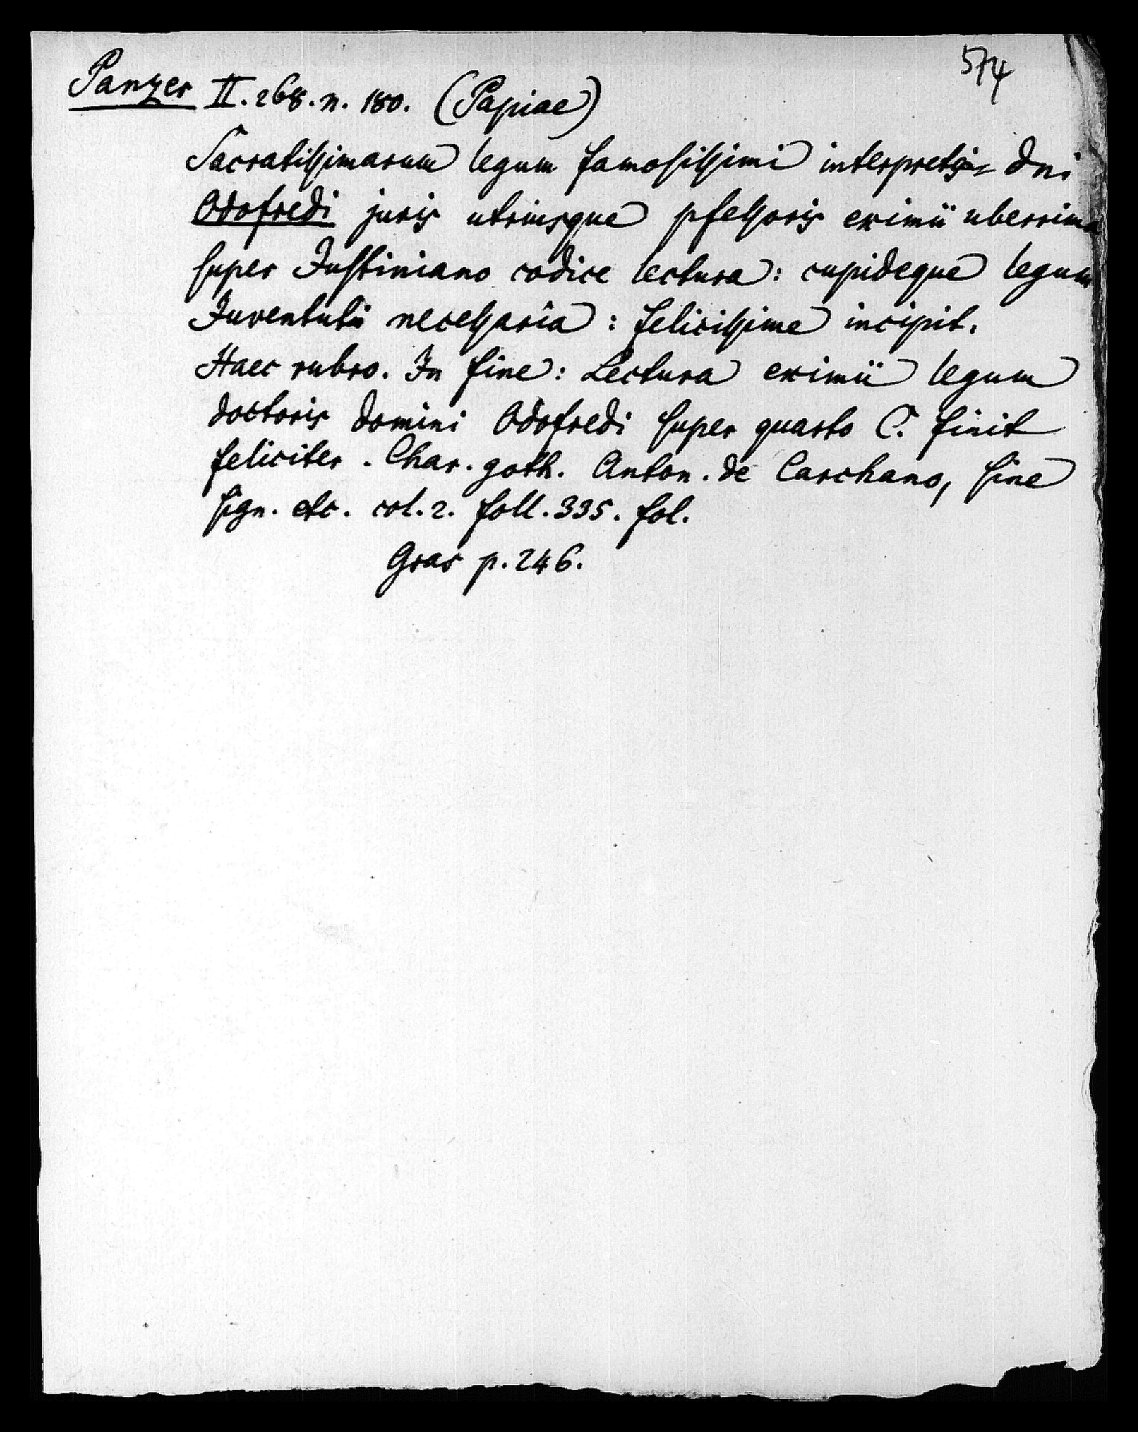 574
Panzer II. 268. n. 180. (Papiae)
Sacratissimarum legum famosissimi interpretis dni
Odofredi juris utriusque pfessoris eximii uberrima
super Justiniano codice lectura: cupideque legum
Juventuti necessaria: felicissime incipit.
Haec rubro. In fine: Lectura eximii legum
doctoris domini Odofredi super quarto C. finit
feliciter. Char. goth. Anton. de Carchano, sine
sign. etc. col. 2. foll. 335. fol.
Gras p. 246.